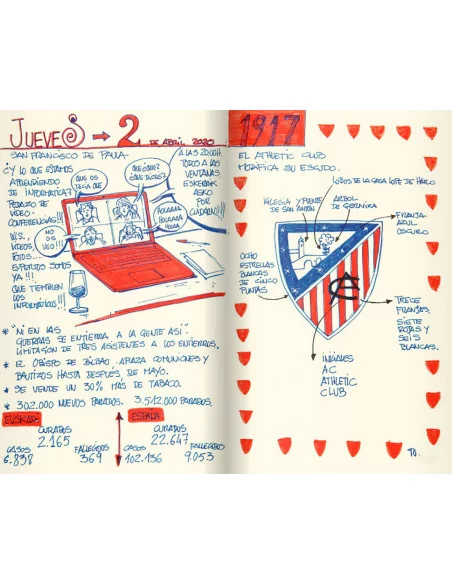 JUEVES → 2 DE ABRIL 2020
SAN FRANCISCO DE PAULA
¿Y LO QUE ESTAMOS
APRENDIENDO
DE INFORMÁTICA?
PEDAZO DE
VIDEO-
CONFERENCIAS!!!
VIDEOS
FOTOS...
ESPERTITO SOMOS
YA!!!
QUE TIEMBLEN
LOS
INFORMÁTICOS!!!
QUE OS
TENÍA QUE
QUÉ QUÉ?
QUÉ DICES?
NO OS
VEO!!!
HOLAAAA
HOLAAAA
HOLAA
A LAS 20:00H
TODOS A LAS
VENTANAS
ESKERRIK
ASKO
POR
CUIDARNOS!!!
* "NI EN LAS
GUERRAS SE ENTIERRA A LA GENTE ASÍ".
LIMITACIÓN DE TRES ASISTENTES A LOS ENTIERROS.
* EL OBISPO DE BILBAO APLAZA COMUNIONES Y
BAUTIZOS HASTA DESPUÉS DE MAYO.
* SE VENDE UN 30% MÁS DE TABACO.
* 302.000 NUEVOS PARADOS. 3.512.000 PARADOS.
EUSKADI
CURADOS
2.165
CASOS
6.838
FALLECIDOS
369
ESPAÑA
CURADOS
22.647
CASOS
102.136
FALLECIDOS
9.053
1917
EL ATHLETIC CLUB
MODIFICA SU ESCUDO.
LOBOS DE LA CASA LOPE DE HARO
IGLESIA Y PUENTE
DE SAN ANTÓN
ÁRBOL
DE GERNIKA
FRANJA
AZUL
OSCURO
OCHO
ESTRELLAS
BLANCAS
DE CINCO
PUNTAS
TRECE
FRANJAS,
SIETE
ROJAS Y
SEIS
BLANCAS.
INICIALES
AC
ATHLETIC
CLUB